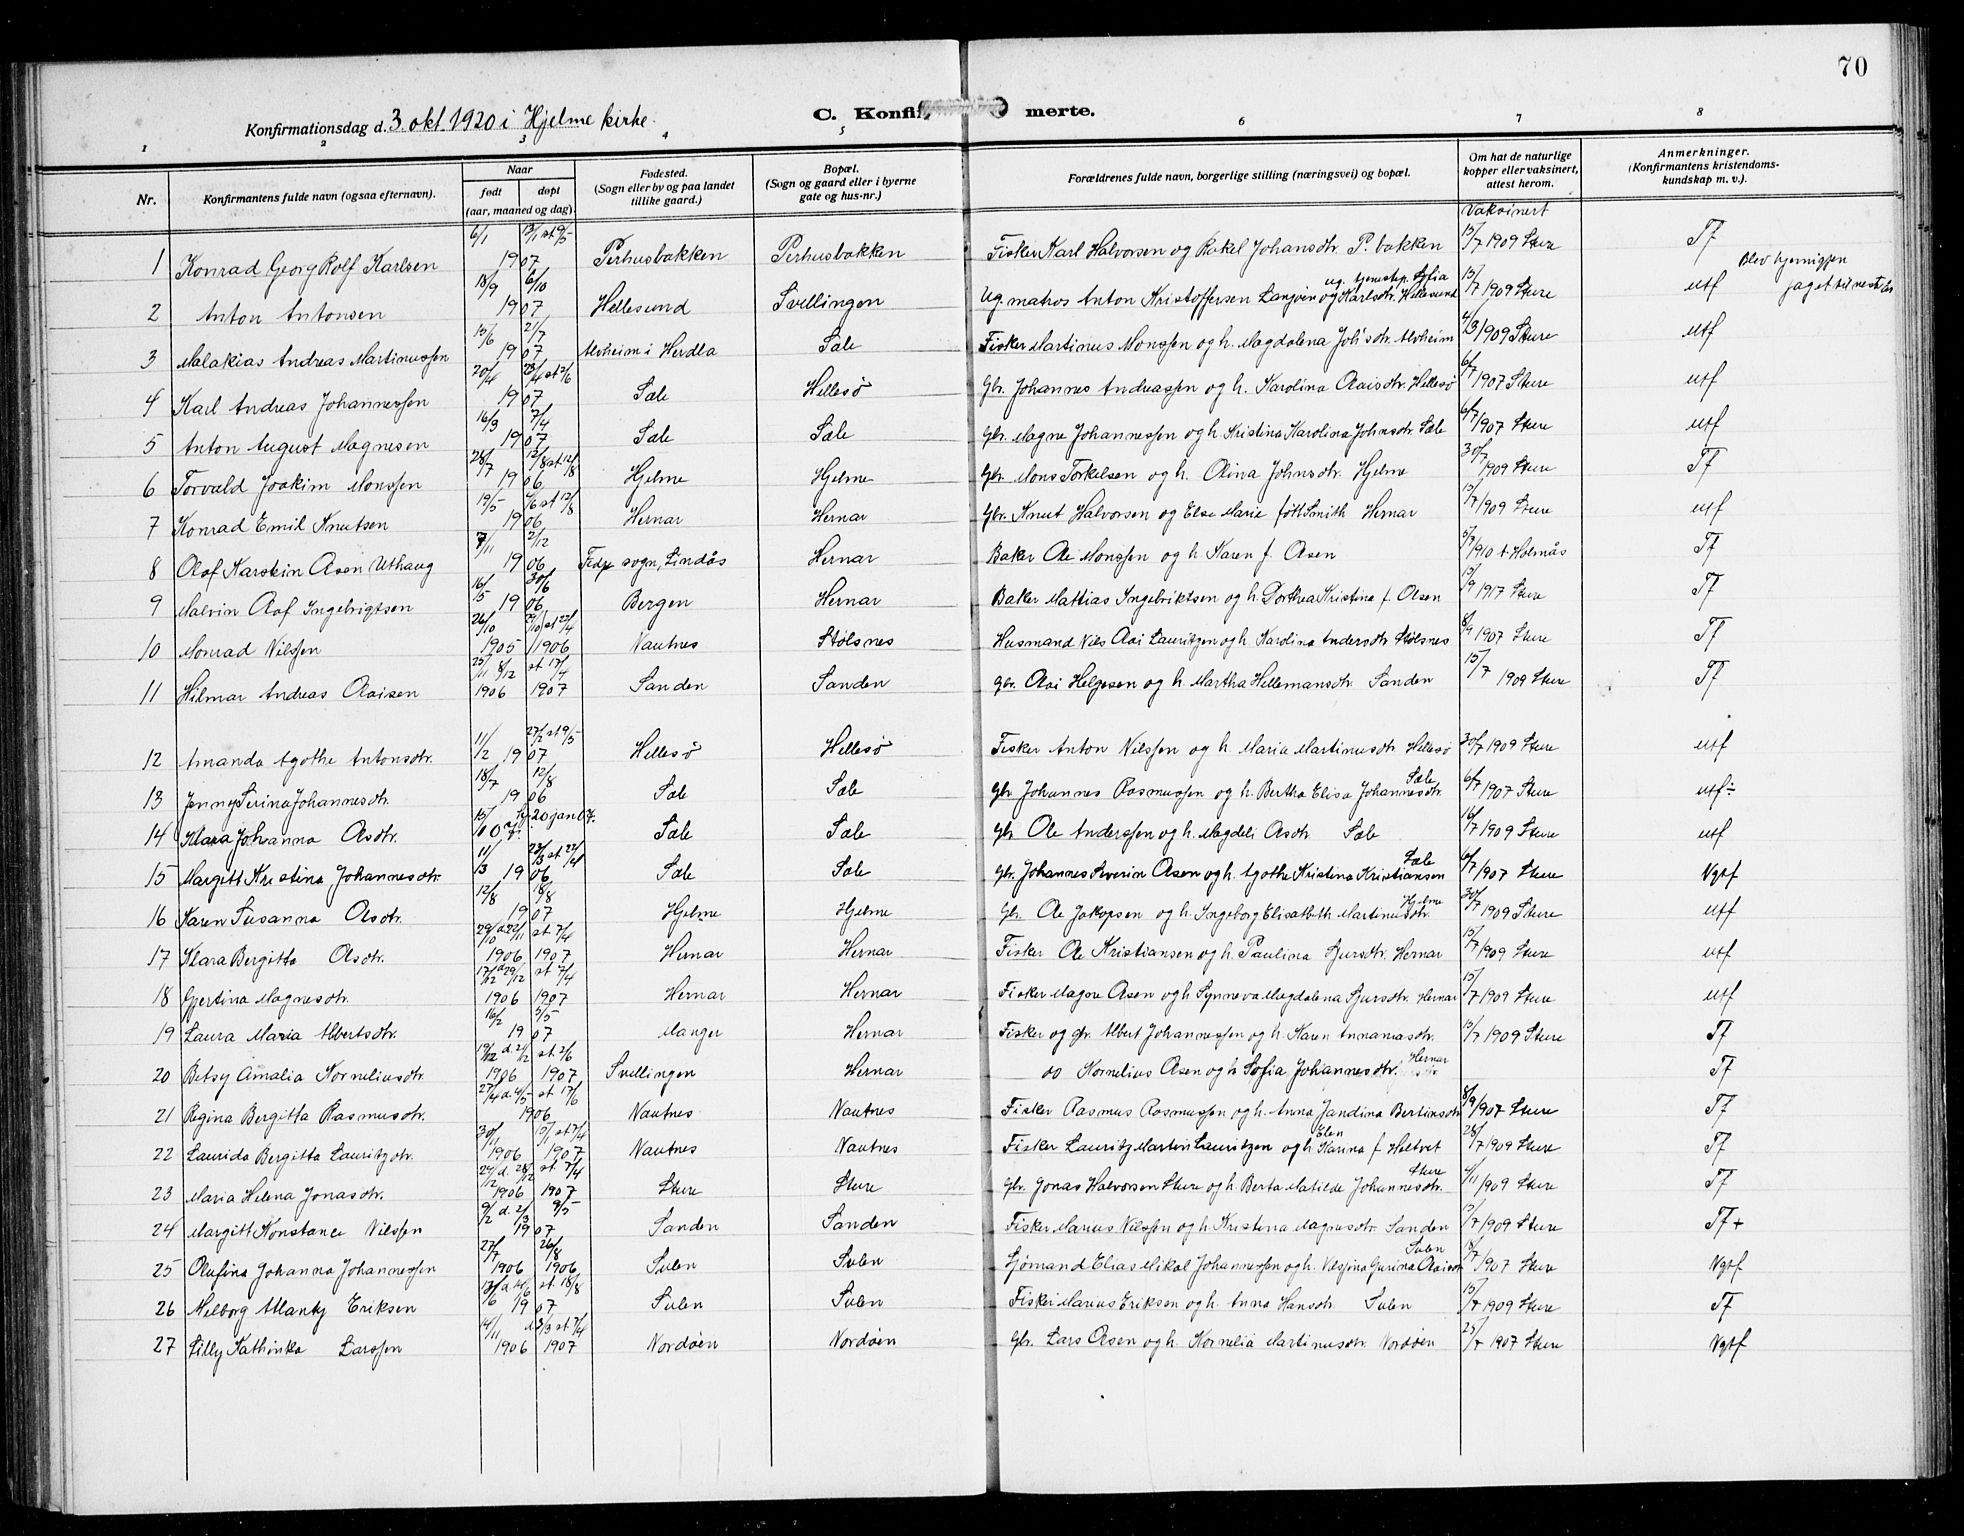 70
Konfirmationsdag d. 3. okt. 1920 i Hjelme kirke.
C. Konfir merte.
1 2 3 4 5 6 7 8
Nr. Konfirmantens fulde navn (ogsaa efternavn). Naar født døpt (aar, maaned og dag). Fødested. (Sogn eller by og paa landet tillike gaard.) Bopæl. (Sogn og gaard eller i byerne gate og hus-nr.) Forældrenes fulde navn, borgerlige stilling (næringsvei) og bopæl. Om hat de naturlige kopper eller vaksinert, attest herom. Anmerkninger. (Konfirmantens kristendoms-kundskap m. v.).
Vaksinert
1 Konrad Georg Rolf Karlsen 6/1 13/1 st 9/5 1907 Perhusbakken Perhusbakken Fisker Karl Halvorsen og Rakel Johansdtr. P. bakken 15/7 1909 Sture Tf
2 Anton Antonsen 18/9 6/10 1907 Hellesund Svellingen Ug. matros Anton Kristoffersen og ug. tjenestep. Sofia Karlsdtr. Hellesund 15/7 1909 Sture utf Blev hjemigjen jaget til neste
3 Malakias Andreas Martinussen 15/6 21/7 1907 Alvheim i Herdla Sæle Fisker Martinus Monssen og h. Magdalena Joh'sdtr Alvheim 4/3 1909 Sture utf
4 Karl Andreas Johannessen 20/4 23/4 st 2/6 1907 Sæle Hellesø Gbr. Johannes Andreassen og h. Karolina Olaisdtr. Hellesø 6/7 1907 Sture utf
5 Anton August Magnesen 16/3 7/4 1907 Sæle Sæle Gbr. Magne Johannessen og h. Kristina Karolina Johnsdtr. Sæle 6/7 1907 Sture utf
6 Torvald Joakim Monssen 28/7 12/8 st 12/8 1906 Hjelme Hjelme Gbr. Mons Torkelsen og h. Olina Johnsdtr. Hjelme 30/7 1909 Sture Tf
7 Konrad Emil Knutsen 19/5 4/6 st 12/8 1906 Hernar Hernar Gbr. Knut Halvorsen og Else Marie født Smith Hernar 15/7 1909 Sture utf
8 Olaf Karstein Olsen Uthaug 7/11 2/12 1906 Fedje sogn, Lindås Hernar Baker Ole Monssen og h. Karen f. Olsen 5/7 1910 t Holmås Tf
9 Malvin Olaf Ingebrigtsen 16/5 30/6 1906 Bergen Hernar Baker Mattias Ingebriktsen og h. Dorthea Kristina f. Olsen 15/9 1917 Sture Tf
10 Monrad Nilssen 26/10 29/10 st 22/4 1905 1906 Nautnes Stølsnes Husmand Nils Olai Lauritzen og h. Karolina Andersdtr Stølsnes 8/9 1907 Sture Tf
11 Hilmar Andreas Olaisen 25/11 8/12 st 17/4 1906 1907 Sanden Sanden Gbr. Olai Helgesen og h. Martha Hellemansdtr. Sanden 15/7 1909 Sture Tf
12 Amanda Agothe Antonsdtr. 11/2 27/2 st 9/5 1907 Hellesø Hellesø Fisker Anton Nilssen og h. Maria Martinusdtr Hellesø 30/7 1909 Sture utf
13 Jenny Serina Johannesdtr. 18/7 12/8 1906 Sæle Sæle Gbr Johannes Rasmussen og h. Bertha Elisa Johannesdtr. Sæle 6/7 1907 Sture utf-
14 Klara Johanna Olsdtr. 15/10 20 jan 07. Sæle Sæle Gbr Ole Anderssen og h. Magdeli Olsdtr Sæle 16/7 1909 Sture utf
15 Margitt Kristina Johannesdtr. 11/3 23/3 st 22/4 1906 Sæle Sæle Gbr. Johannes Severin Olsen og h. Agothe Kristina Kristiansen Sæle 6/7 1907 Sture Ngtf
16 Karen Susanna Olsdtr. 12/8 18/8 1907 Hjelme Hjelme Gbr. Ole Jakopsen og h. Ingeborg Elisatbeth Martinusdtr. Hjelme 30/7 1909 Sture utf
17 Klara Bergitta Olsdtr. 29/10 d 22/11 st. 7/4 1906 1907 Hernar Hernar Fisker Ole Kristiansen og h. Paulina Sjursdtr. Hernar 15/7 1909 Sture utf
18 Gjertina Magnesdtr. 17/12 d 29/12 st 7/4 1906 1907 Hernar Hernar Fisker Magne Olsen og h Synneva Magdalena Sjursdtr. Hernar 15/7 1909 Sture utf
19 Laura Maria Albertsdtr. 16/2 5/5 1907 Manger Hernar Fisker og gbr. Albert Johannessen og h. Karen Annanasdtr. 15/7 1909 Sture Tf
20 Betsy Amalia Korneliusdtr. 19/12 d. 2/12 st. 2/6 1906 1907 Svellingen Hernar do Kornelius Olsen og h Sofia Johannesdtr. Hernar Tf
21 Regina Bergitta Rasmusdtr. 27/4 d. 4/5 st 17/6 1906 Nautnes Nautnes Fisker Rasmus Rasmussen og h. Anna Jandina Bertinsdtr 8/9 1907 Sture Tf
22 Laurida Bergitta Lauritzdtr. 30/11 15/1 st 7/4 1906 1907 Nautnes Nautnes Fisker Lauritz Martin Lauritzen og h Elen Karina f Heltvet 28/7 1909 Sture Tf
23 Maria Helena Jonasdtr. 24/12 d. 28/12 st 7/4 1906 1907 Sture Sture Gbr. Jonas Halvorsen Sture og h. Berta Matilde Johannesdtr. Sture 4/11 1909 Sture Tf
24 Margitt Konstance Nilssen 9/2 d. 2/3 9/5 1907 Sanden Sanden Fisker Marius Nilssen og h. Kristina Magnesdtr. Sanden 15/7 1909 Sture Tf+
25 Olufina Johanna Johannessen 27/7 26/8 1906 1906 Sulen Sulen Sjømand Elias Mikal Johannessen og h. Nilsina Gurina Olaisdtr Sulen 18/7 1907 Sture Ngtf
26 Nelborg Manky Eriksen 13/6 d 14/6 st. 18/8 1907 Sulen Sulen Fisker Marius Eriksen og h. Anna Hansdtr. Sulen 15/7 1909 Sture Tf
27 Lilly Kathinka Larssen 14/11 d 3/3 st 7/4 1906 1907 Nordøen Nordøen Gbr. Lars Olsen og h. Kornelia Martinusdtr. Nordøen 25/7 1907 Sture Ngtf